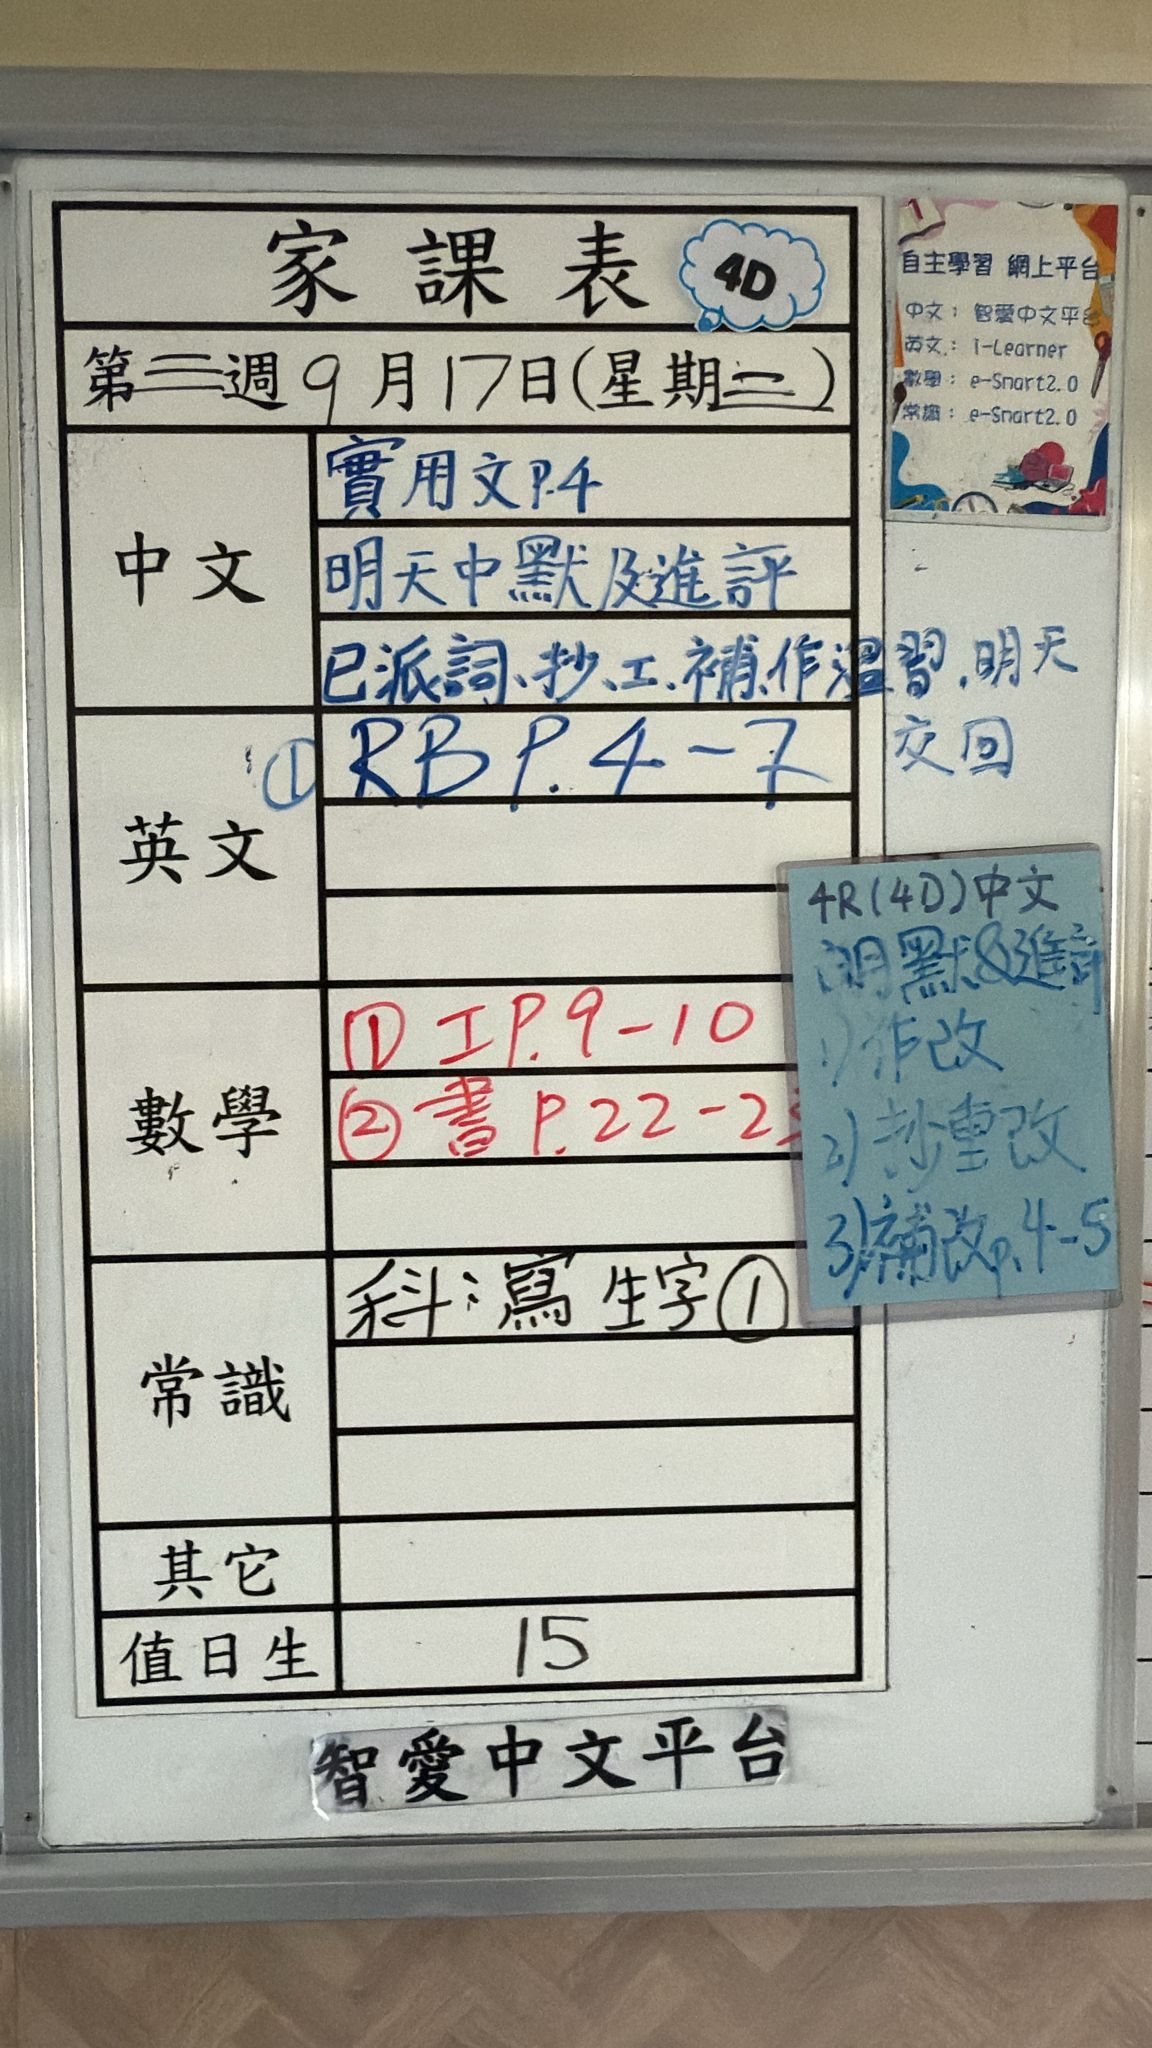 家課表 4D
第三週9月17日(星期三)
中文
實用文P.4
明天中默及進評
已派詞、抄、工、補、作溫習,明天
交回
英文
① RB P.4-7
數學
① 工P.9-10
② 書P.22-2
常識
科:寫生字①
其它
值日生
15
智愛中文平台
自主學習 網上平台
中文: 智愛中文平台
英文: i-Learner
數學: e-Smart2.0
常識: e-Smart2.0
4R(4D)中文
明默&進評
1)作改
2)抄重改
3)補改p.4-5